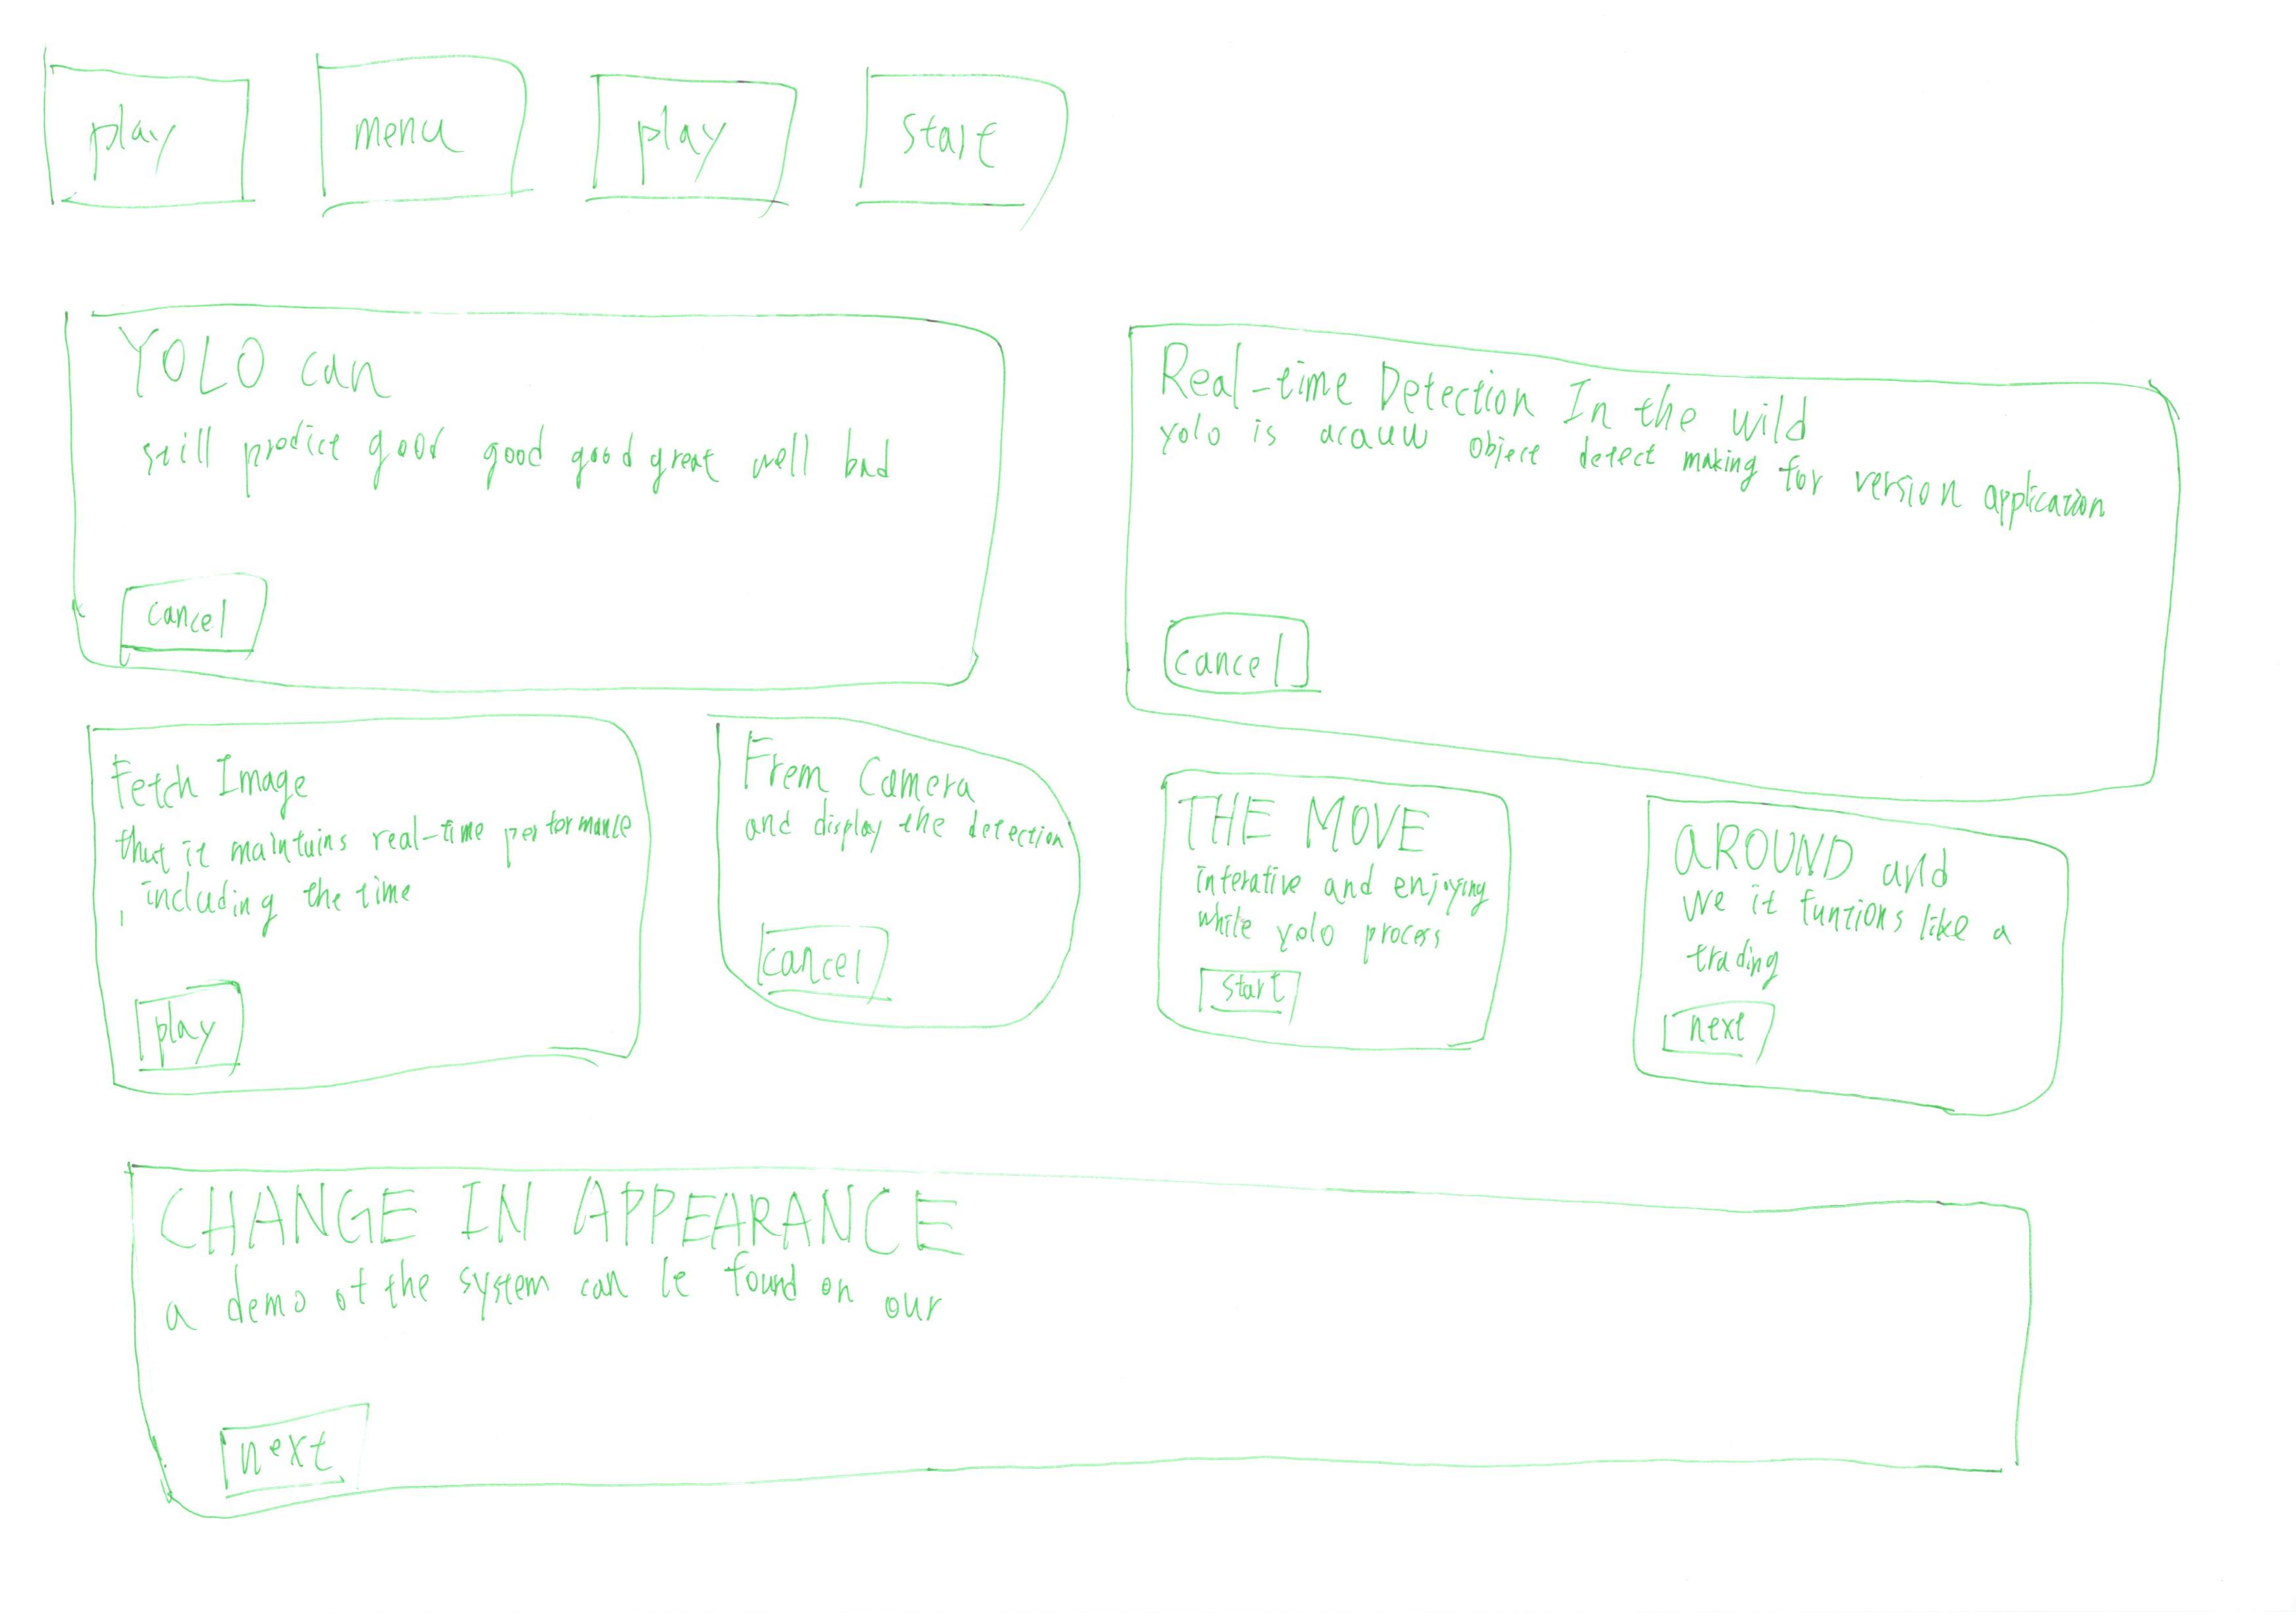 play
menu
play
start
YOLO can
still prodice good good good great well bad
cancel
Real-time Detection In the wild
yolo is object detect making for version application
cancel
Fetch Image
that it maintains real-time performance
, including the time
play
Frem Camera
and display the detection
cancel
THE MOVE
interative and enjoying
while yolo process
start
AROUND and
we it funtions like a
trading
next
CHANGE IN APPEARANCE
a demo of the system can be found on our
next